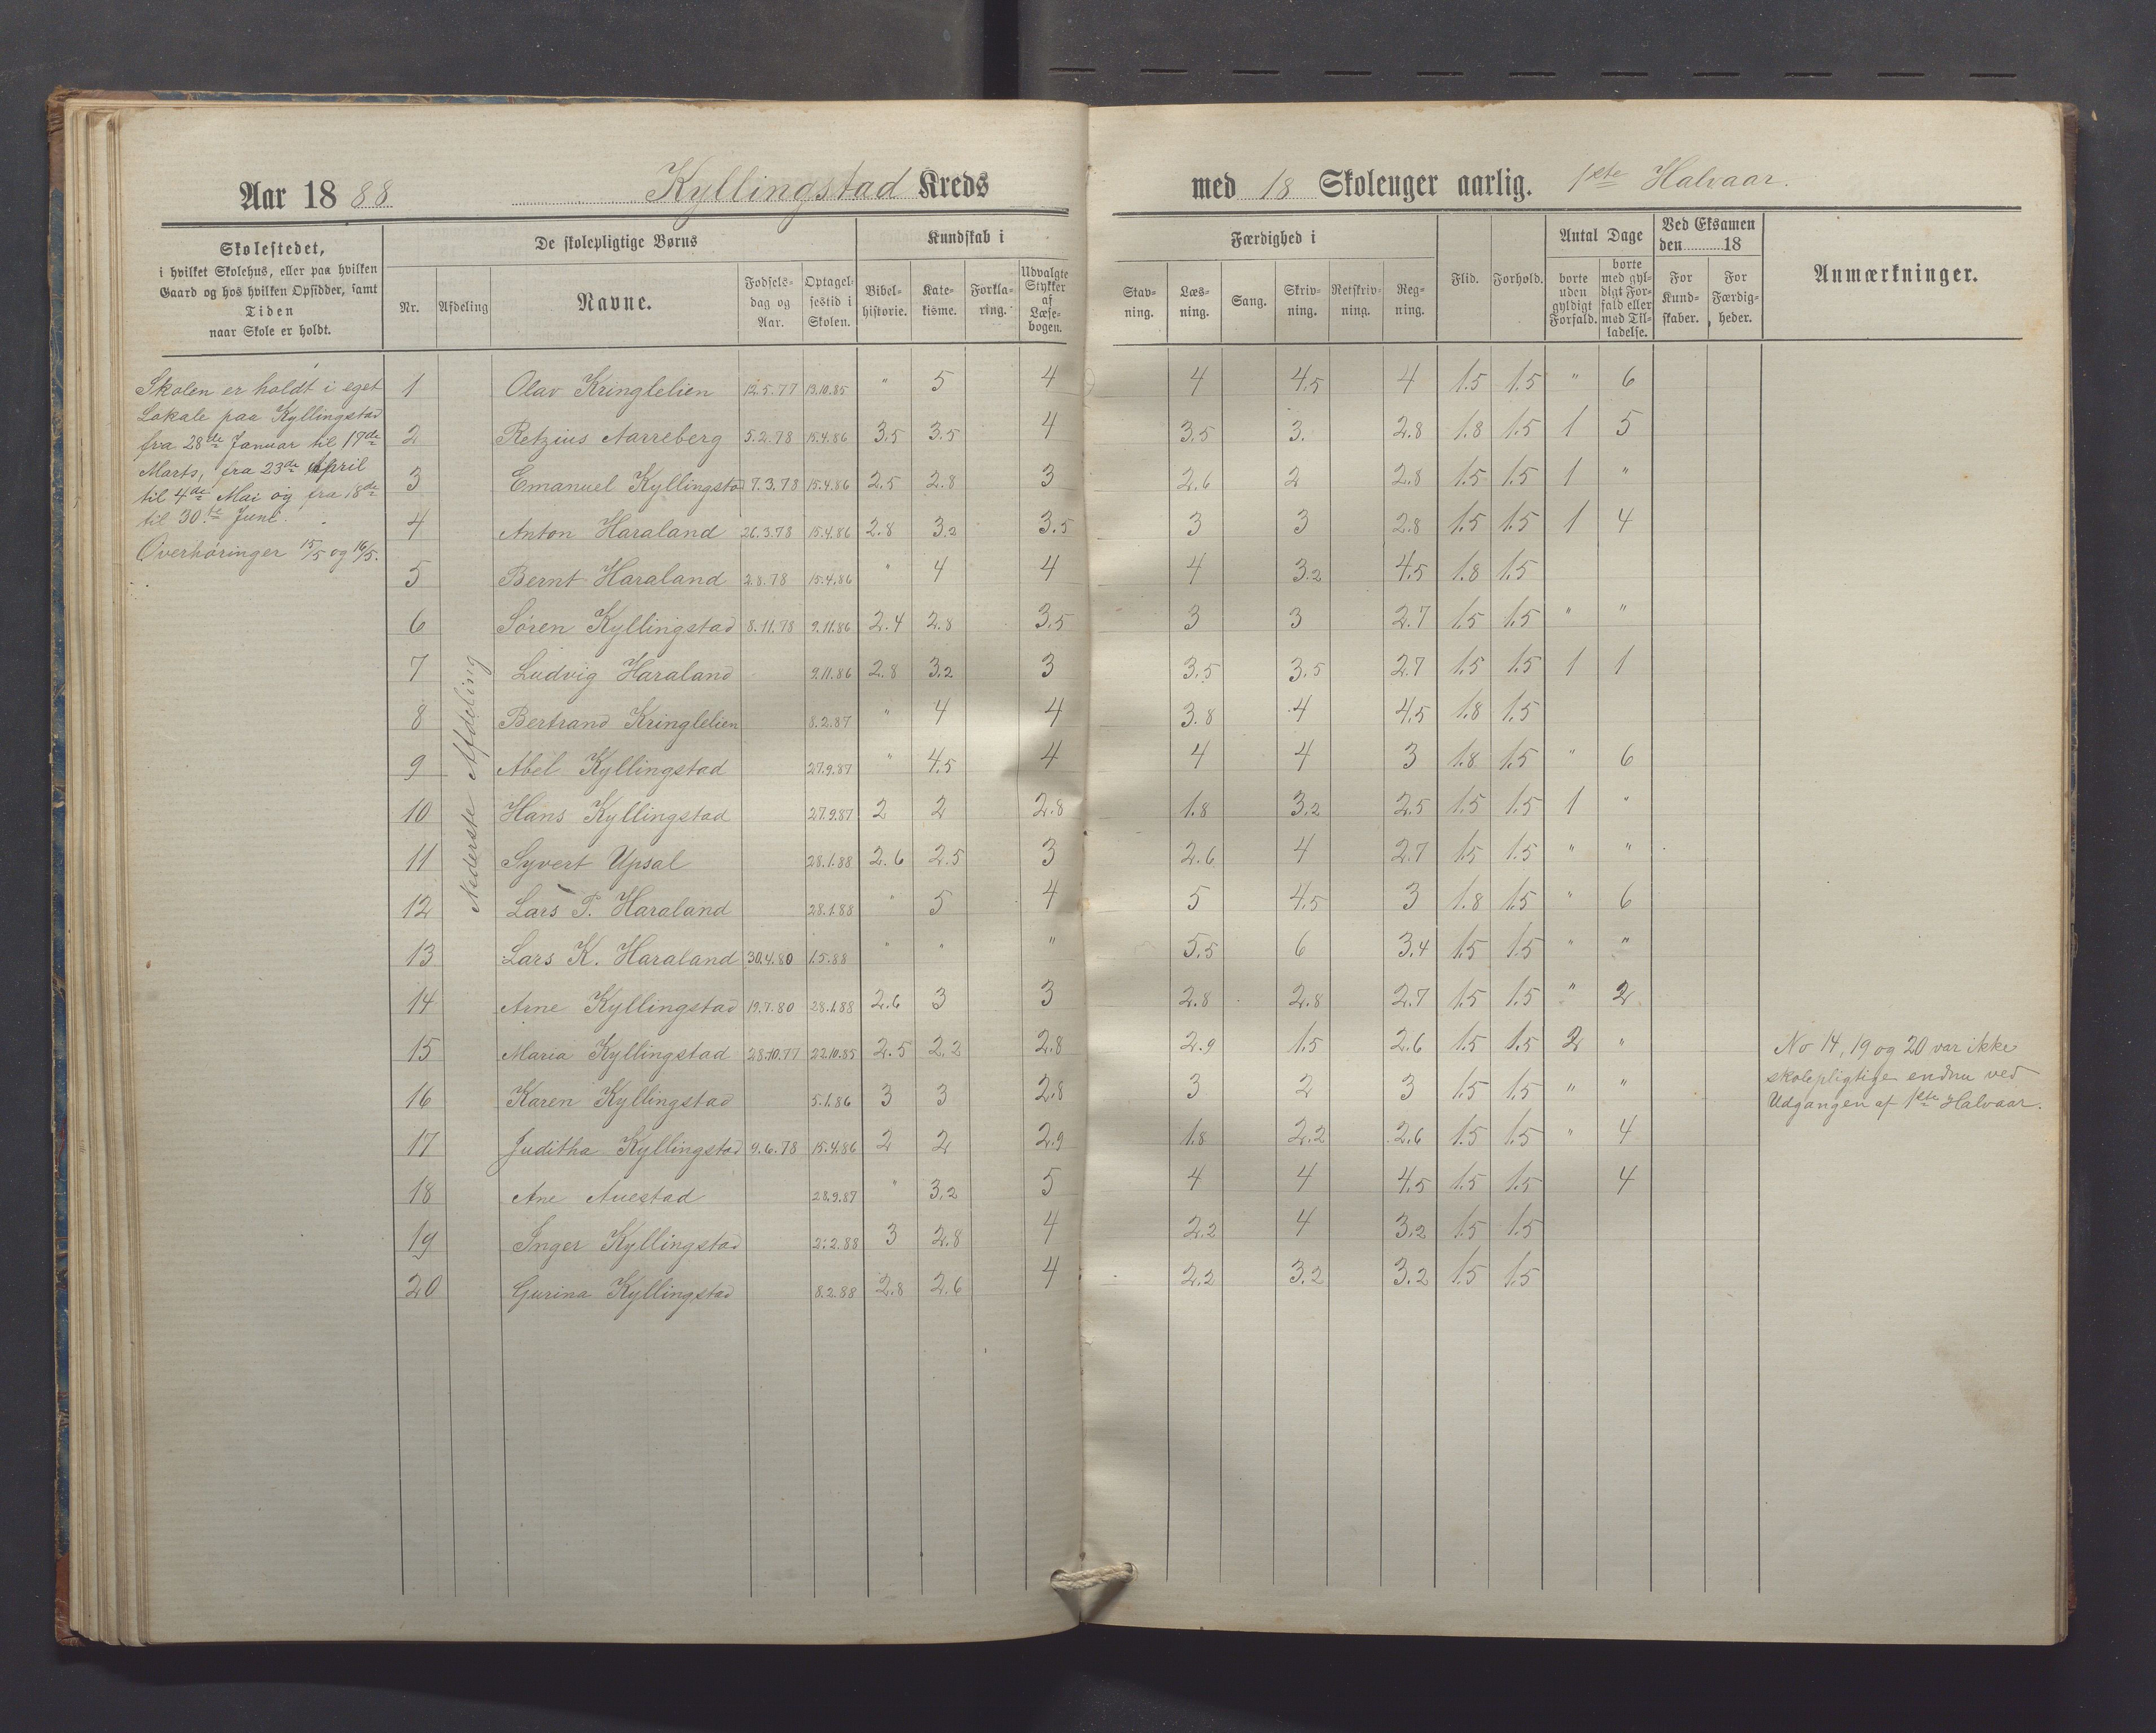 Aar 1888 Kyllingstad Kreds med 18 Skoleuger aarlig. 1ste Halvaar.
Skolestedet,
i hvilket Skolehus, eller paa hvilken
Gaard og hos hvilken Opsidder, samt
Tiden
naar Skole er holdt.
De skolepligtige Børns
Nr. Afdeling Navne. Fødselsdag og Aar. Optagelsestid i Skolen.
Kundskab i
Bibelhistorie. Katekisme. Forklaring. Udvalgte Stykker af Læsebogen.
Færdighed i
Stavning. Læsning. Sang. Skrivning. Retskrivning. Regning.
Flid. Forhold.
Antal Dage
borte uden gyldigt Forfald. borte med gyldigt Forfald eller med Tilladelse.
Ved Eksamen den 18
For Kundskaber. For Færdigheder.
Anmærkninger.
Skolen er holdt i eget
Lokale paa Kyllingstad
fra 28de Januar til 17de
Marts, fra 23de April
til 4de Mai og fra 18de
til 30te Juni.
Overhøringer 15/5 og 16/5.
Nederste Afdeling
1 Olav Kringlelien 12.5.77 13.10.85 " 5 4 4 4,5 4 1.5 1.5 " 6
2 Retzius Aarreberg 5.2.78 15.4.86 3.5 3.5 4 3.5 3. 2.8 1.8 1.5 1 5
3 Emanuel Kyllingstad 7.3.78 15.4.86 2.5 2.8 3 2.6 2 2.8 1.5 1.5 1 "
4 Anton Haraland 26.3.78 15.4.86 2.8 3.2 3.5 3 3 2.8 1.5 1.5 1 4
5 Bernt Haraland 2.8.78 15.4.86 " 4 4 4 3.2 4.5 1.8 1.5
6 Søren Kyllingstad 8.11.78 9.11.86 2.4 2.8 3.5 3 3 2.7 1.5 1.5 " "
7 Ludvig Haraland 9.11.86 2.8 3.2 3 3.5 3.5 2.7 1.5 1.5 1 1
8 Bertrand Kringlelien 8.2.87 " 4 4 3.8 4 4.5 1.8 1.5
9 Abel Kyllingstad 27.9.87 " 4.5 4 4 4 3 1.8 1.5 " 6
10 Hans Kyllingstad 27.9.87 2 2 2.8 1.8 3.2 2.5 1.5 1.5 1 "
11 Syvert Upsal 28.1.88 2.6 2.5 3 2.6 4 2.7 1.5 1.5 " "
12 Lars T. Haraland 28.1.88 " 5 4 5 4.5 3 1.8 1.5 " 6
13 Lars K. Haraland 30.4.80 1.5.88 " " " 5.5 6 3.4 1.5 1.5 " "
14 Arne Kyllingstad 19.7.80 28.1.88 2.6 3 3 2.8 2.8 2.7 1.5 1.5 " 2
15 Maria Kyllingstad 28.10.77 22.10.85 2.5 2.2 2.8 2.9 1.5 2.6 1.5 1.5 2 "
16 Karen Kyllingstad 5.1.86 3 3 2.8 3 2 3 1.5 1.5 " "
17 Juditha Kyllingstad 9.6.78 15.4.86 2 2 2.9 1.8 2.2 2.6 1.5 1.5 " 4
18 Ane Auestad 28.9.87 " 3.2 5 4 4 4.5 1.5 1.5 4
19 Inger Kyllingstad 2.2.88 3 2.8 4 2.2 4 3.2 1.5 1.5
20 Gurina Kyllingstad 8.2.88 2.8 2.6 4 2.2 3.2 3.2 1.5 1.5
No 14, 19 og 20 var ikke
skolepligtige endnu ved
Udgangen af 1ste Halvaar.